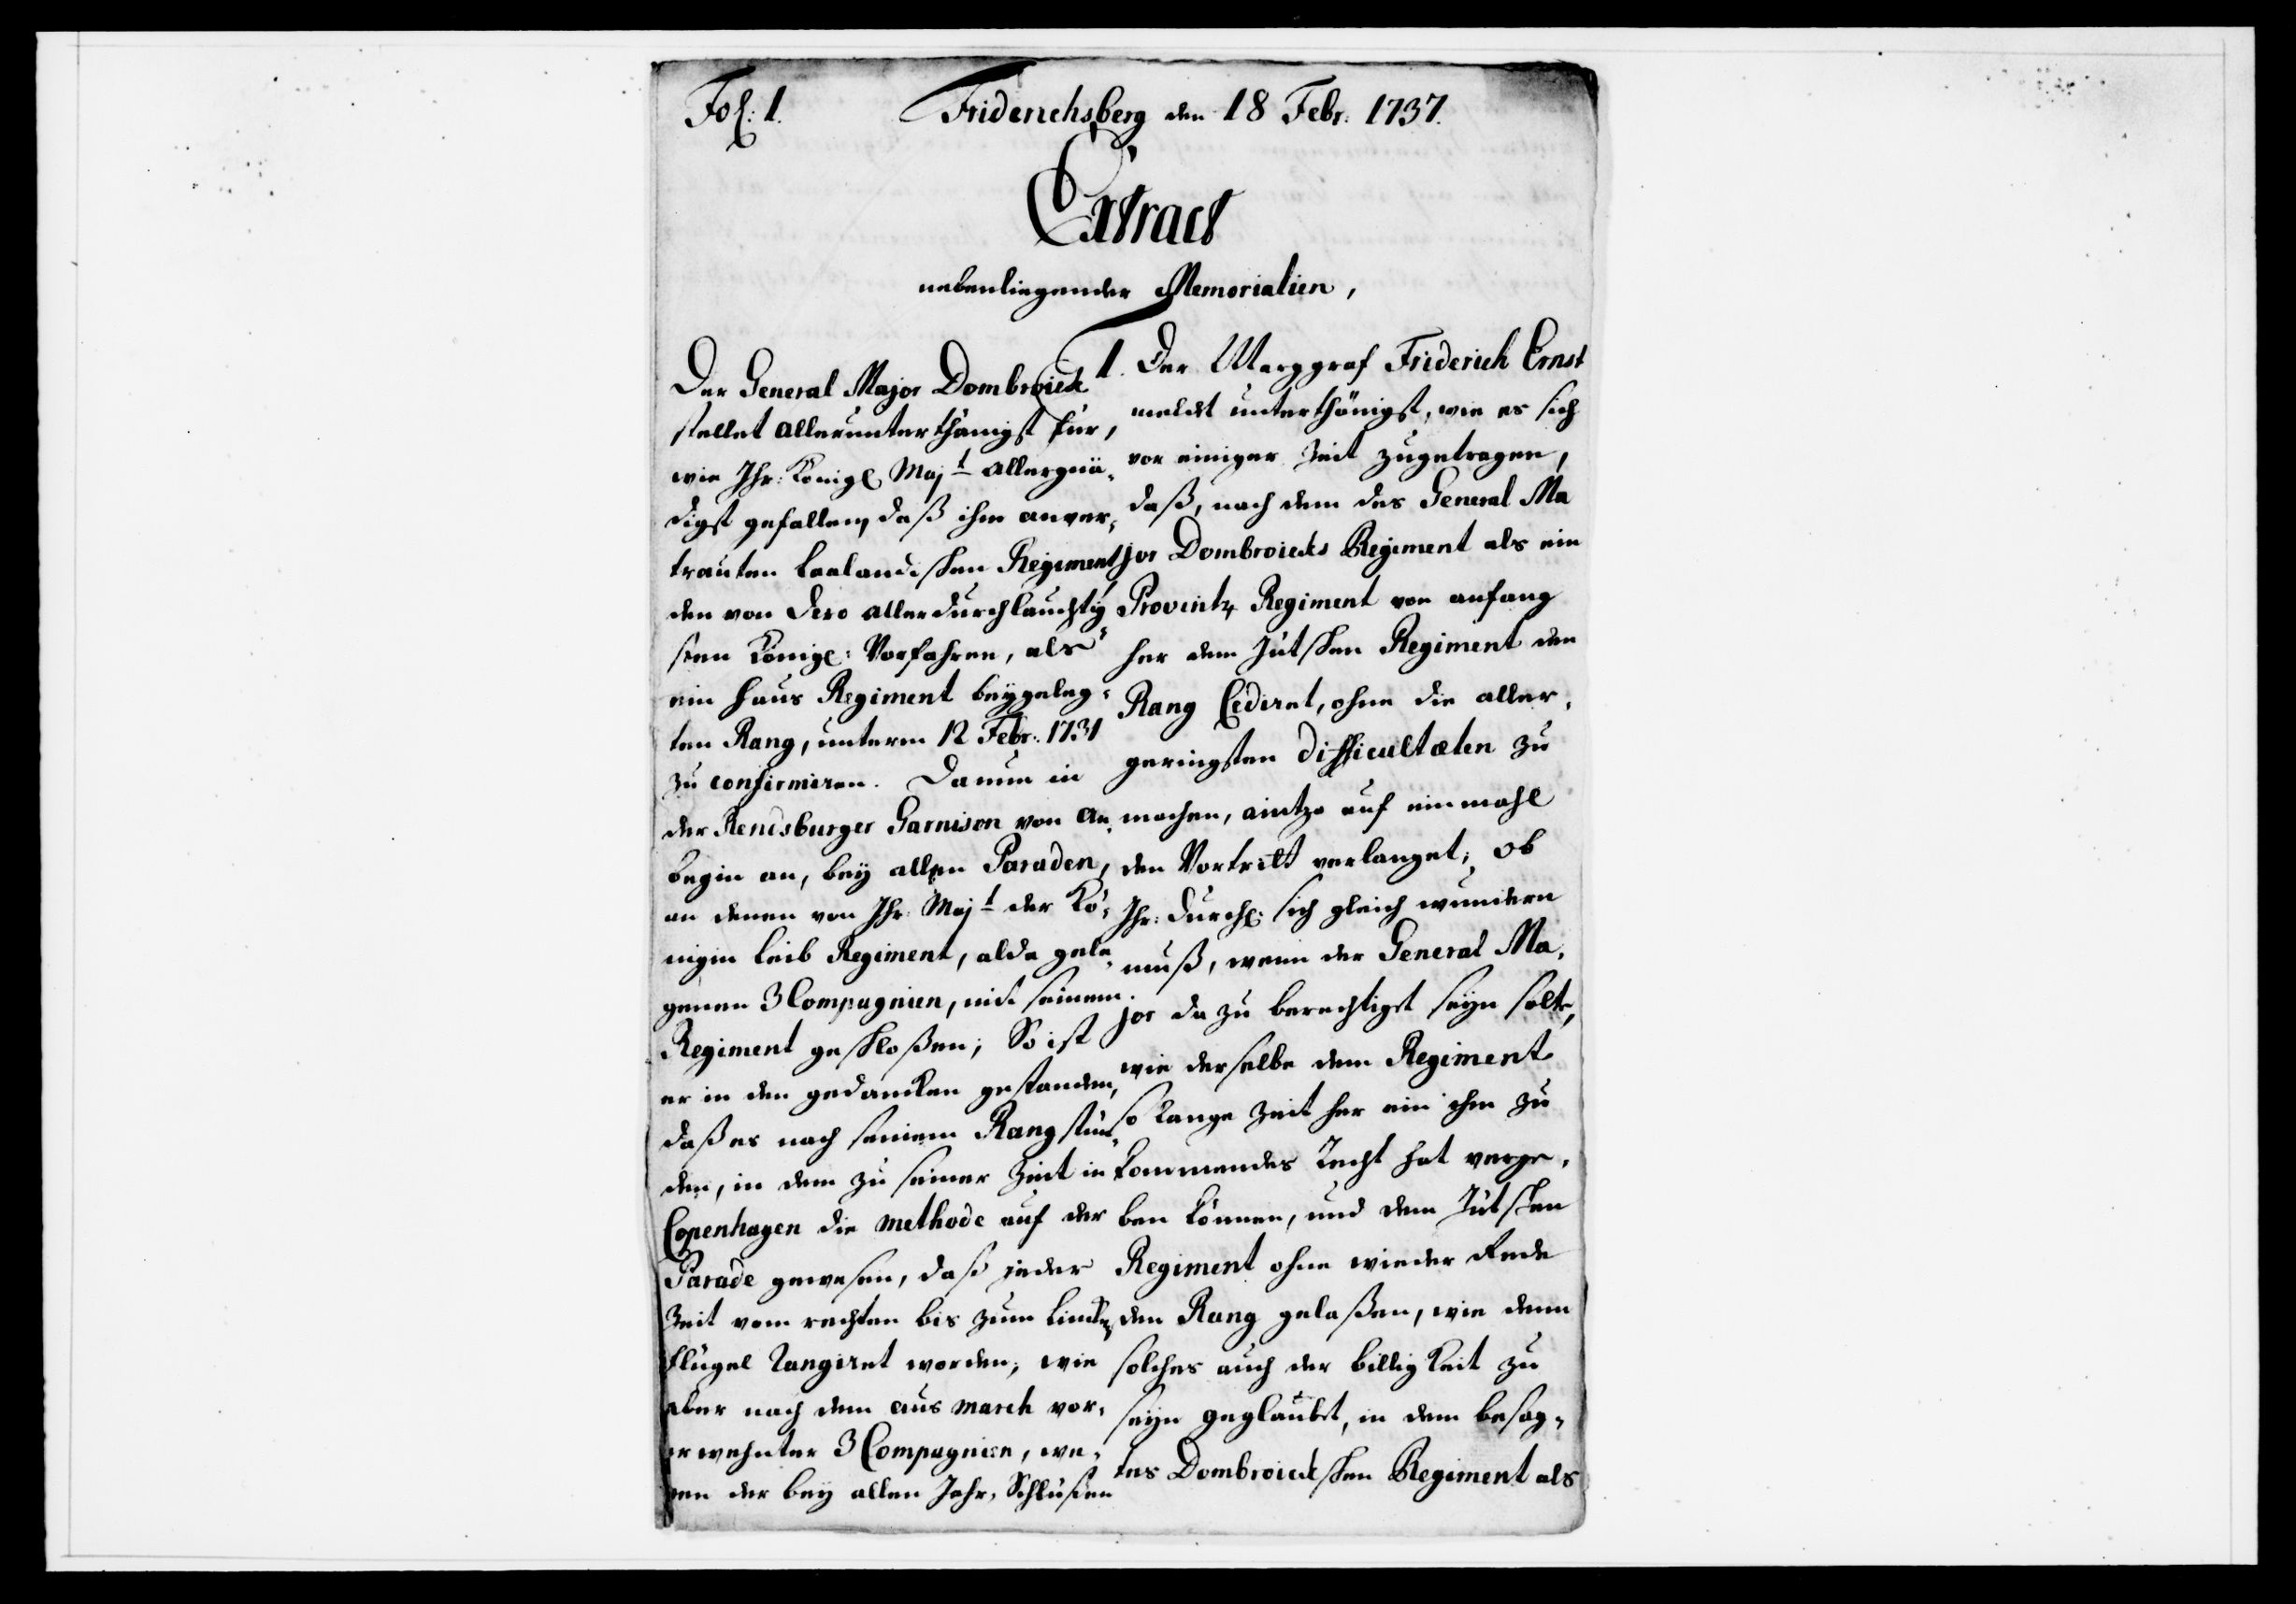 Fol: 1.
Friderichsberg den 18 Febr. 1737.
Extract
nebenliegender Memorialien,
Der General Major Dombroick
stellet allerunterthänigst für,
wie Ihr: Königl Majt allergnä-
digst gefallen, daß ihm anver-
trauten Laalandischen Regiment
den von Dero allerdurchlauchtig
sten Königl: Vorfahren, als
ein Haus Regiment beygeleg-
ten Rang, unterm 12 Febr. 1731
zu confirmiren. Da nun in
der Rendsburger Garnison von An-
begin an, bey allen Paraden,
an denen von Ihr Majt der Kö-
nigin Leib Regiment, alda gele-
genen 3 Compagnien, mit seinem
Regiment geschloßen; So ist
er in den gedancken gestanden,
daß es nach seinem Rang stün-
den, in dem zu seiner Zeit in
Copenhagen die methode auf der
Parade gewesen, daß jeder
Zeit vom rechten bis zum lincken
flügel rangiret worden; wie
aber nach dem ausmarch vor-
erwehnter 3 Compagnien, we-
gen der bey allen Jahr, Schlüßen
1. Der Marggraf Friderich Ernst
meldet unterthänigst, wie es sich
vor einiger Zeit zugetragen,
daß, nach dem des General Ma
jor Dombroicks Regiment als ein
Provintz Regiment von anfang
her dem Jütschen Regiment den
Rang Cediret, ohne die aller-
geringsten difficultæten zu
machen, aintzo auf einmahl
den Vortritt verlanget; ob
Ihr: Durchl: sich gleich wundern
muß, wenn der General Ma-
jor da zu berechtiget seyn solte,
wie derselbe dem Regiment
so lange Zeit her ein ihm zu
kommendes Recht hat verge-
ben können, und dem Jütschen
Regiment ohne wieder Rede
den Rang gelaßen, wie denn
solches auch der billigkeit zu
seyn geglaubt, in dem besag-
tes Dombroickschen Regiment als